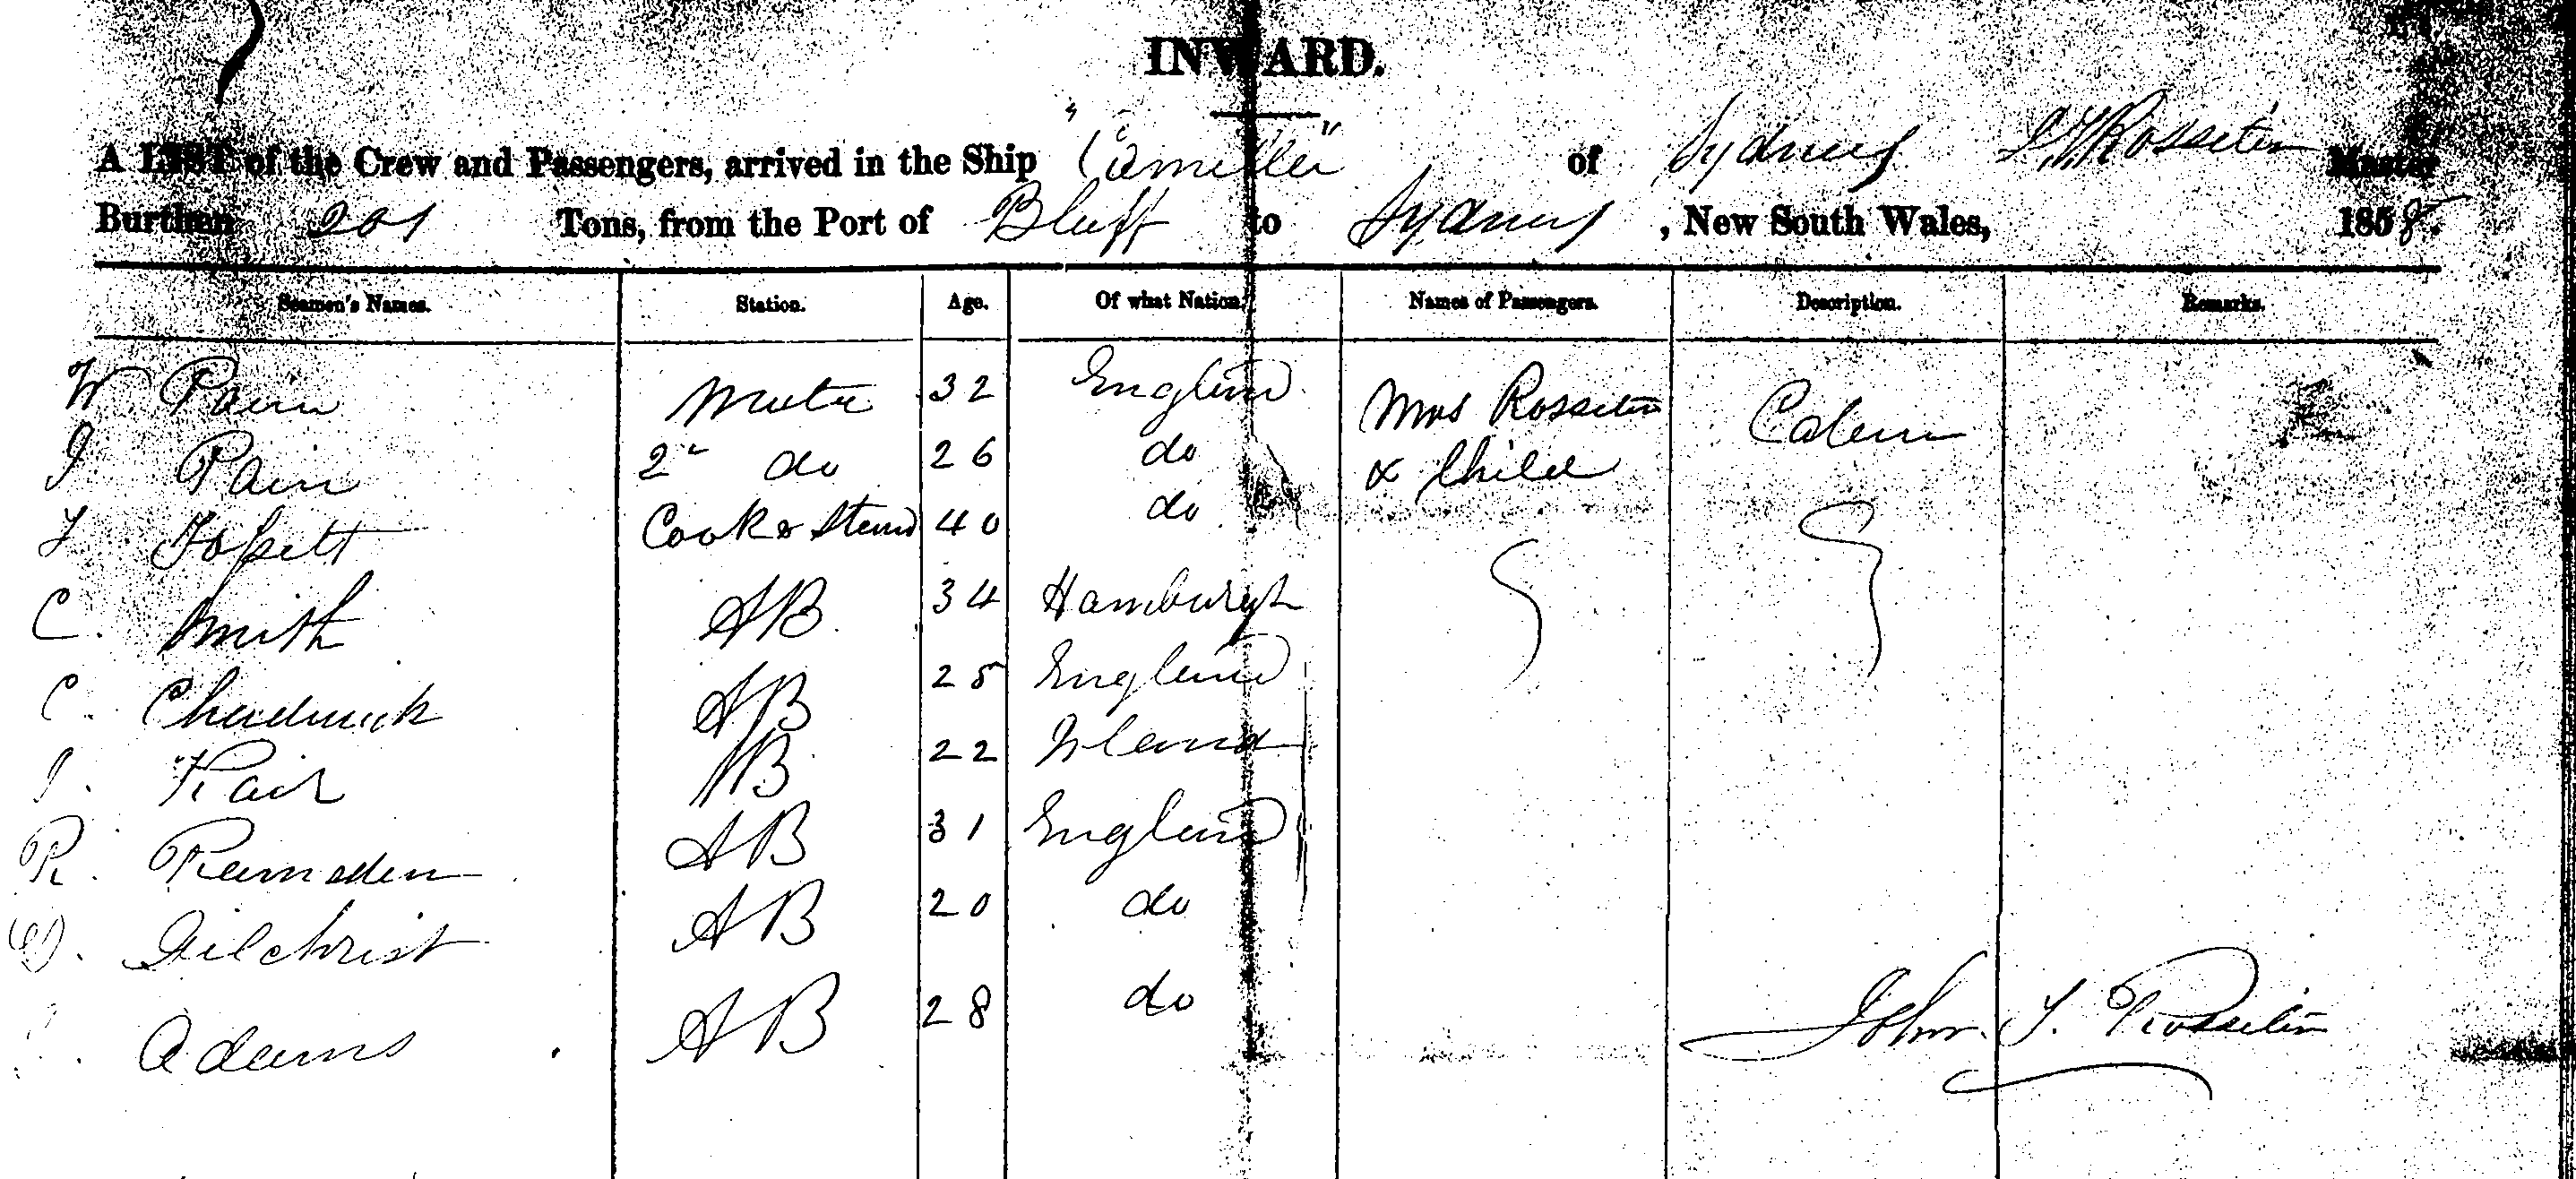 INWARD.
A LIST of the Crew and Passengers, arrived in the Ship "Camilla" of Sydney J. T. Rossiter Master
Burthen 201 Tons, from the Port of Bluff to Sydney, New South Wales, 1858.
Seamen's Names. Station. Age. Of what Nation. Names of Passengers. Description. Remarks.
W Pain Mate 32 England Mrs Rossiter Cabin
J Pain 2 do 26 do & Child
Cook & Stewd 40 do
C. Smith AB 34 Hamburgh
C. Chadwick AB 25 England
J. AB 22 Ireland
R. Ramsden AB 31 England
Gilchrist AB 20 do
Adams AB 28 do
John T. Rossiter